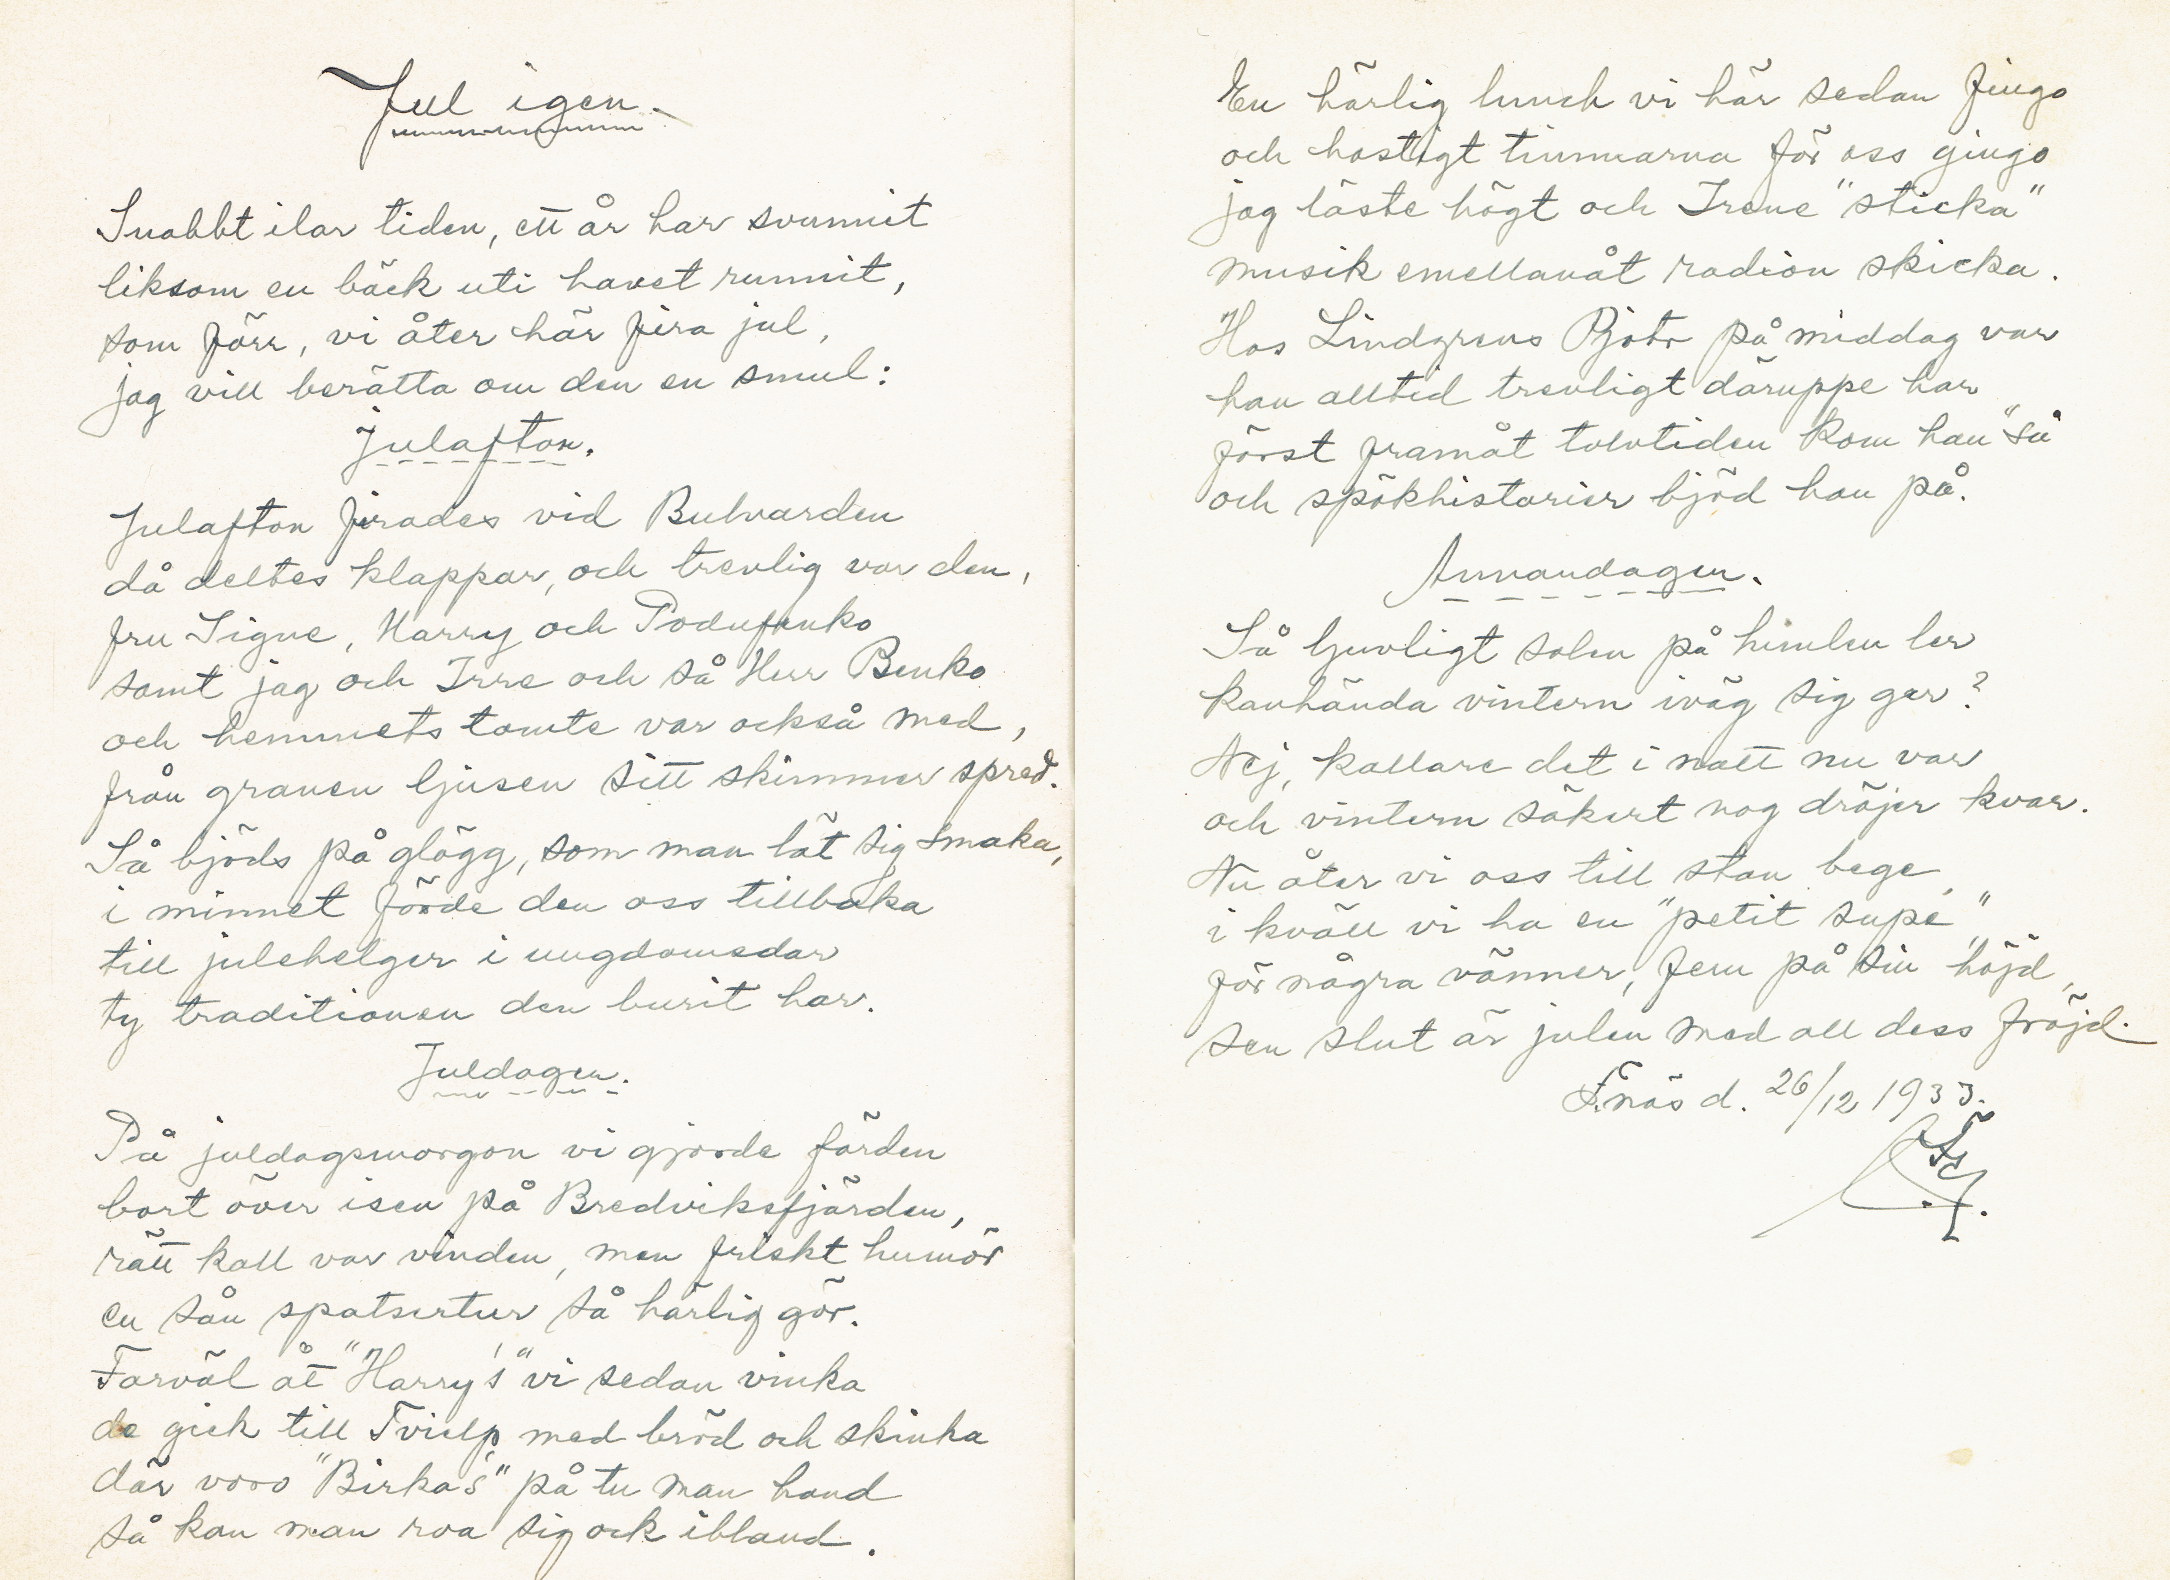 Jul igen.
Snabbt ilar tiden, ett år har svunnit
liksom en bäck uti havet runnit,
som förr, vi åter här fira jul,
jag vill berätta om den en smul:
Julafton.
Julafton firades vid Bulvarden
då deltes klappar, och trevlig var den,
fru Signe, Harry och Podufenko
samt jag och Irre och så Herr Benko
och hemmets tomte var också med,
från granen ljusen sitt skimmer spred.
Så bjöds på glögg, som man lät sig smaka,
i minnet förde den oss tillbaka
till julehelger i ungdomsdar
ty traditionen den burit har.
Juldagen.
På juldagsmorgon vi gjorde färden
bort över isen på Bredviksfjärden,
rätt kall var vinden, men friskt humör
en sån spatsertur så härlig gör.
Farväl åt "Harry's" vi sedan vinka
de gick till Tvielp med bröd och skinka
där voro "Birka's" på tu man hand
så kan man roa sig ock ibland.
En härlig lunch vi här sedan fingo
och hastigt timmarna för oss gingo
jag läste högt och Irene "sticka"
musik emellanåt radion skicka.
Hos Lindgrens Pjotr på middag var
han alltid trevligt däruppe har
först framåt tolvtiden kom han "su"
och spökhistorier bjöd han på.
Annandagen.
Så ljuvligt solen på himlen ler
kanhända vintern iväg sig ger?
Nej, kallare det i natt nu var
och vintern säkert nog dröjer kvar.
Nu åter vi oss till stan bege,
i kväll vi ha en "petit supé"
för några vänner, fem på sin höjd,
sen slut är julen med all dess fröjd.
F.näs d. 26/12 1933.